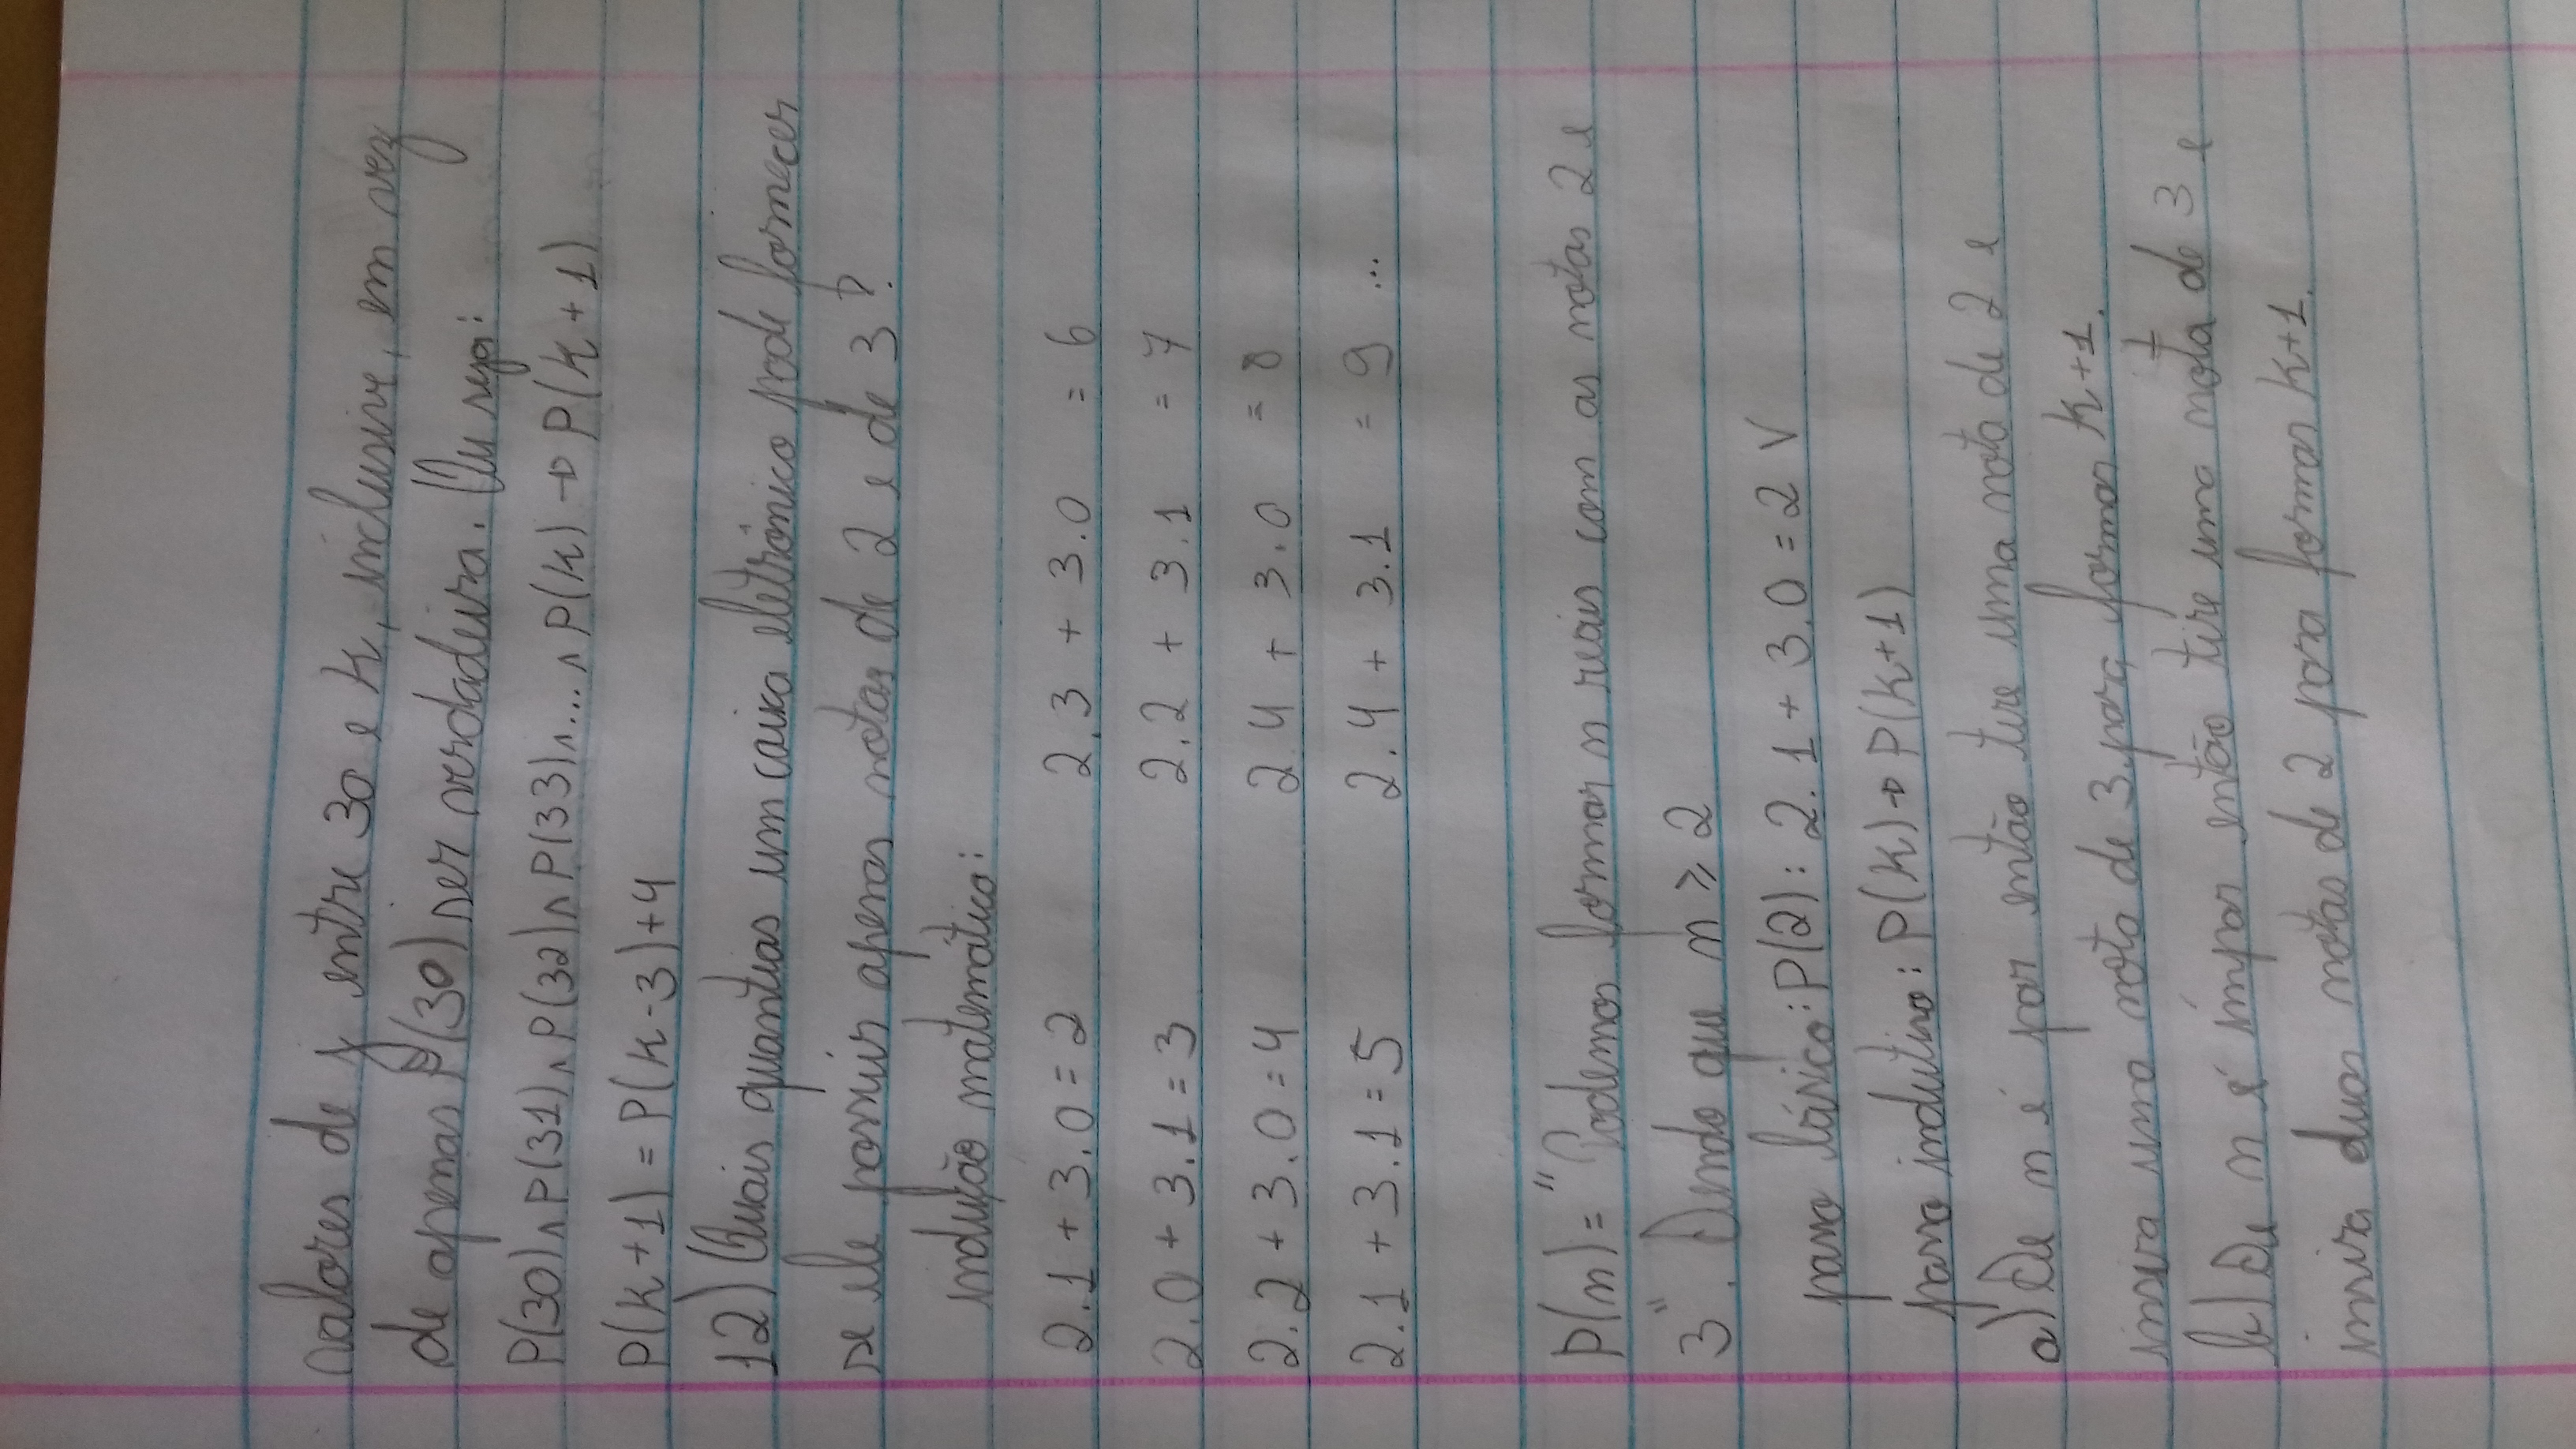 valores de j entre 30 e k, inclusive, em vez
de apenas P(30) ser verdadeira. Ou seja:
P(30)∧P(31)∧P(32)∧P(33)∧....∧P(k)→P(k+1)
P(k+1)=P(k-3)+4
12) Quais quantias um caixa eletrônico pode fornecer
se ele possuir apenas notas de 2 e de 3?
indução matemático:
2.1 + 3.0 = 2 2.3 + 3.0 = 6
2.0 + 3.1 = 3 2.2 + 3.1 = 7
2.2 + 3.0 = 4 2.4 + 3.0 = 8
2.1 + 3.1 = 5 2.4 + 3.1 = 9 ...
P(n) = "Podemos formar n reais com as notas 2 e
3". Sendo que n ≥ 2
passo básico: P(2): 2.1 + 3.0 = 2 V
passo indutivo: P(k)→P(k+1)
a) Se n é par então tire uma nota de 2 e
insira uma nota de 3 para formar k+1.
b) Se n é ímpar então tire uma nota de 3 e
insira duas notas de 2 para formar k+1.